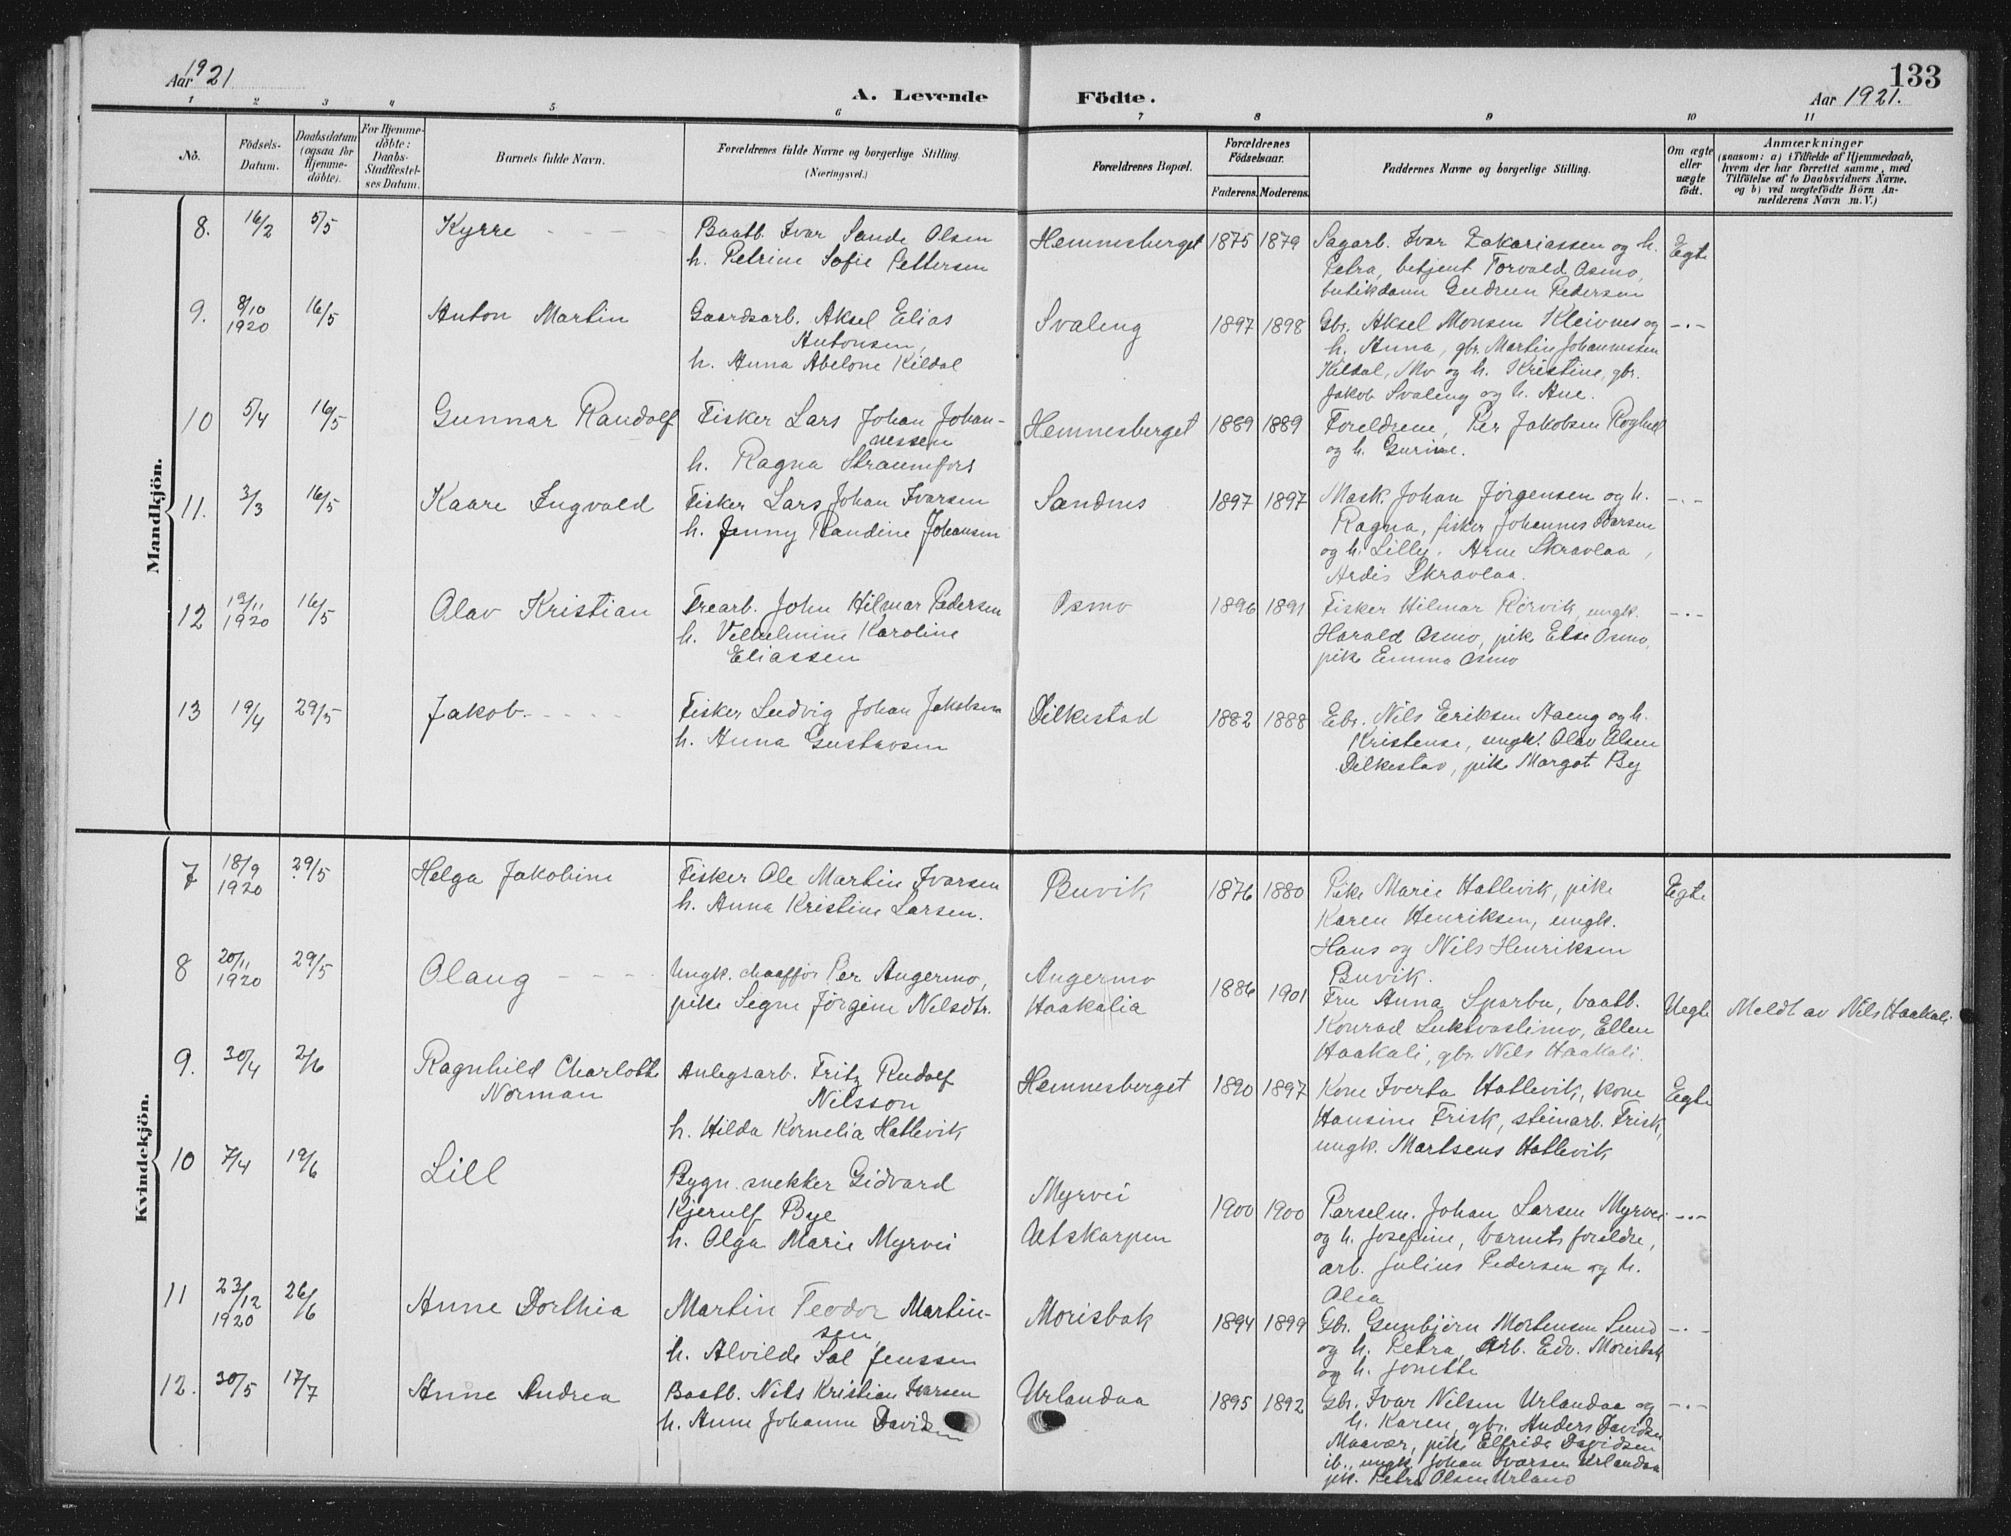 Aar 1921
A. Levende Födte.
133
Aar 1921.
1 2 3 4 5 6 7 8 9 10 11
No.
Födsels-
Datum.
Daabsdatum
(ogsaa for
Hjemme-
döbte).
For Hjemme-
döbte:
Daabs-
Stadfæstel-
ses Datum.
Barnets fulde Navn.
Forældrenes fulde Navne og borgerlige Stilling.
(Næringsvei.)
Forældrenes Bopæl.
Forældrenes
Födselsaar.
Faderens. Moderens.
Faddernes Navne og borgerlige Stilling.
Om ægte
eller
uægte
födt.
Anmærkninger
(saasom: a) i Tilfælde af Hjemmedaab,
hvem der har forrettet samme, med
Tilföielse af to Daabsvidners Navne,
og b) ved uægtefödte Börn An-
melderens Navn m. V.)
Mandkjön.
8. 16/2 5/5 Kyrre
Baatb. Ivar Sande Olsen
h. Petrine Sofie Pettersen
Hemnesberget 1875 1879
Sagarb. Ivar Zakariassen og h.
Petra, betjent Torvald Osmo,
butikdame Gudrun Pedersen
Egte
9. 8/10 1920 16/5 Anton Martin
Gaardsarb. Aksel Elias
Antonsen,
h. Anna Abelone Kildal
Svaleng 1897 1898
Gbr. Aksel Monsen Kleivnes og
h. Anna, gbr. Martin Johannessen
Kildal, Mo og h. Kristine, gbr.
Jakob Svaleng og h. Ane.
-"-
10 5/4 16/5 Gunnar Randolf
Fisker Lars Johan Johan-
nessen
h. Ragna Straumfors
Hemnesberget 1889 1889
Foreldrene, Per Jakobsen
og h. Gurine.
11. 3/3 16/5 Kaare Ingvald
Fisker Lars Johan Ivarsen
h. Jenny Randine Johansen
Sandnes 1897 1897
Mask. Johan Jörgensen og h.
Ragna, fisker Johannes Ivarsen
og h. Lilly, Arne Skravlaa,
Ardis Skravlaa.
-"-
12 19/11 1920 16/5 Olav Kristian
Trearb. John Hilmar Pedersen
h. Vilhelmine Karoline
Eliassen
Osmo 1896 1891
Fisker Hilmar Rörvik, ungk.
Harald Osmo, pike Else Osmo,
pike Emma Osmo
-"-
13 19/4 29/5 Jakob
Fisker Ludvig Johan Jakobsen
h. Anna Gustavsen
Dilkestad 1882 1888
Ebr. Nils Eriksen Aaeng og h.
Kristense, ungk. Olav Olsen
Dilkestad, pike Margot By
Kvindekjön.
7 18/9 1920 29/5 Helga Jakobine
Fisker Ole Martin Ivarsen
h. Anna Kristine Larsen.
Buvik 1876 1880
Pike Marie Hatlevik, pike
Karen Henriksen, ungk.
Hans og Nils Henriksen
Buvik.
Egte
8 20/11 1920 29/5 Olaug
Ungk. chaufför Per Angermo,
pike Signe Jörgine Nilsdtr.
Angermo
Haakalia
1886 1901
Fru Anna Sparbu, baatb.
Konrad Luktvaslimo, Ellen
Haakali, gbr. Nils Haakali.
Uegte
Meldt av Nils Haakali
9. 30/4 2/6 Ragnhild Charlotte
Norman
Anlegsarb. Fritz Rudolf
Nilsson
h. Hilda Kornelia Hatlevik
Hemnesberget 1890 1897
Kone Iverta Hatlevik, kone
Hansine Frisk, steinarb. Frisk,
ungk. Martsens Hatlevik
Egte
10 7/4 19/6 Lill
Bygn. snekker Gidvard
Kjerulf Bye
h. Olga Marie Myrvei
Myrvei
Utskarpen
1900 1900
Parselm. Johan Larsen Myrvei
og h. Josefine, barnets foreldre,
arb. Julius Pedersen og h.
Olea
-"-
11 23/12 1920 26/6 Anne Dorthia
Martin Teodor Martin-
sen,
h. Alvilde Sal Jenssen
Morisbak 1894 1899
Gbr. Gunbjörn Mortensen Lund
og h. Petra, Arb. Edv. Morisbak
og h. Jonette
-"-
12. 30/5 17/7 Anne Andrea
Baatb. Nils Kristian Ivarsen
h. Anne Johanne Davidsen
Urlandaa 1895 1892
Gbr. Ivar Nilsen Urlandaa og
h. Karen, gbr. Anders Davidsen
Maavær, pike Elfride Davidsen
ib., ungk. Johan Ivarsen Urlandaa
pik. Petra Olsen Urland
-"-